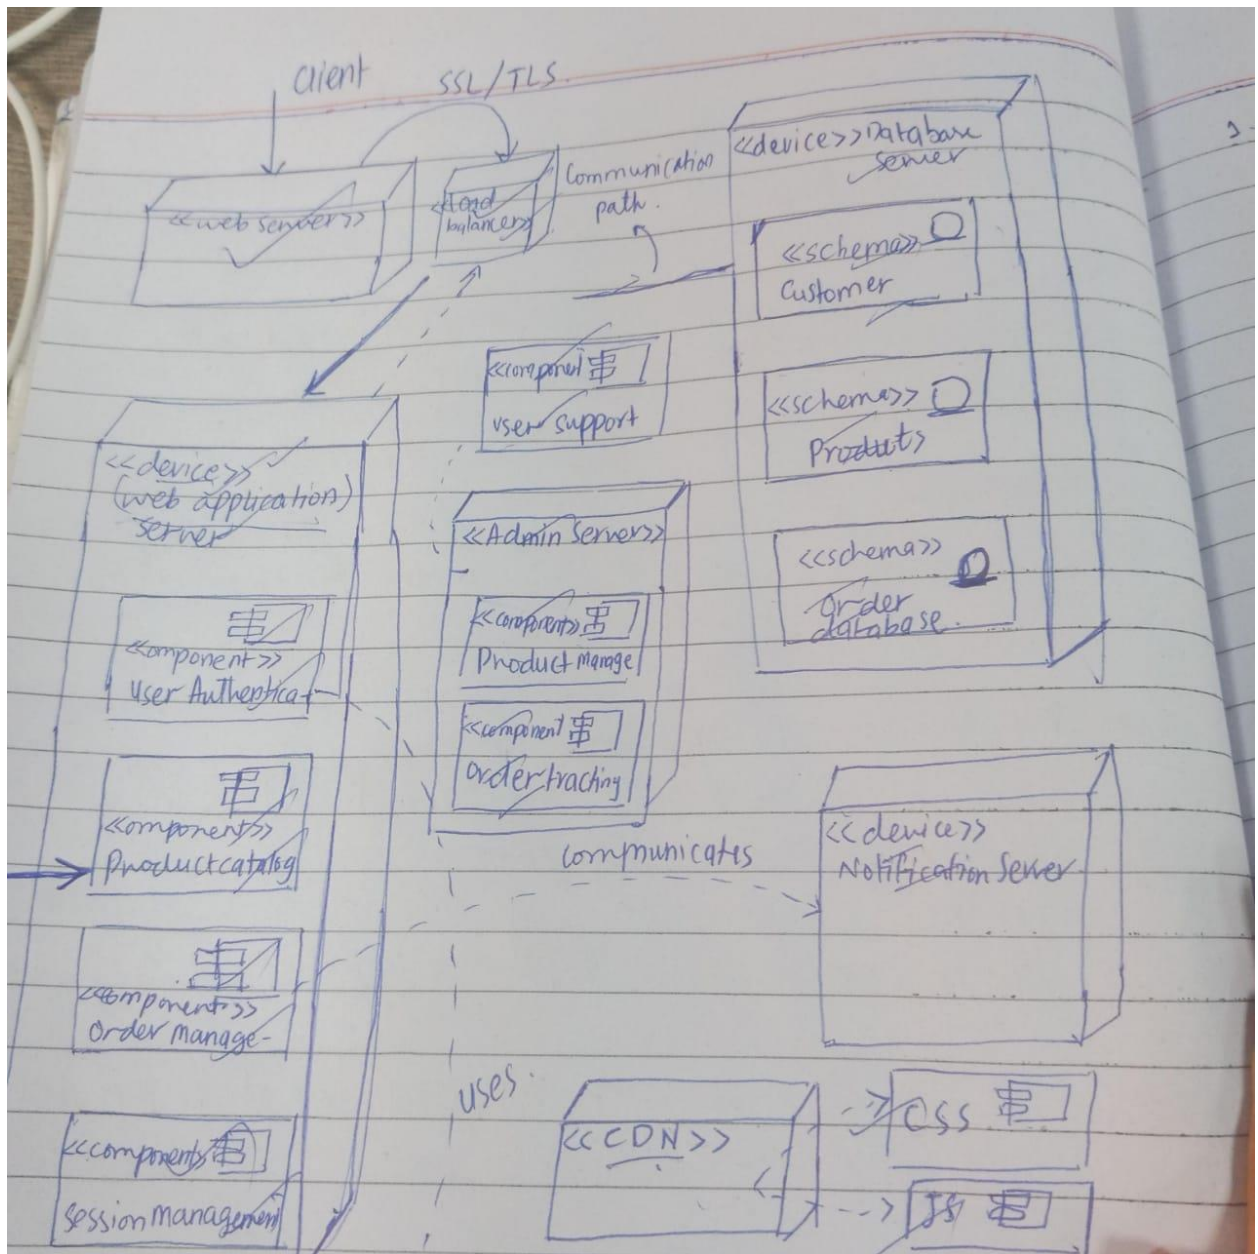 client
SSL/TLS.
<<web server>>
<<load
balancer>>
Communication
path.
<<device>> Database
server
<<schema>>
Customer
<<schema>>
Products
<<schema>>
Order
database.
<<component
user support
<<device>>
(web application)
server
<<component>>
User Authentica-
<<component>>
Product catalog
<<component>>
Order manage-
<<component>>
session management
<<Admin Server>>
<<component>>
Product Manage
<<component
Order tracting
communicates
<<device>>
Notification Server
uses.
<<CDN>>
CSS
JS